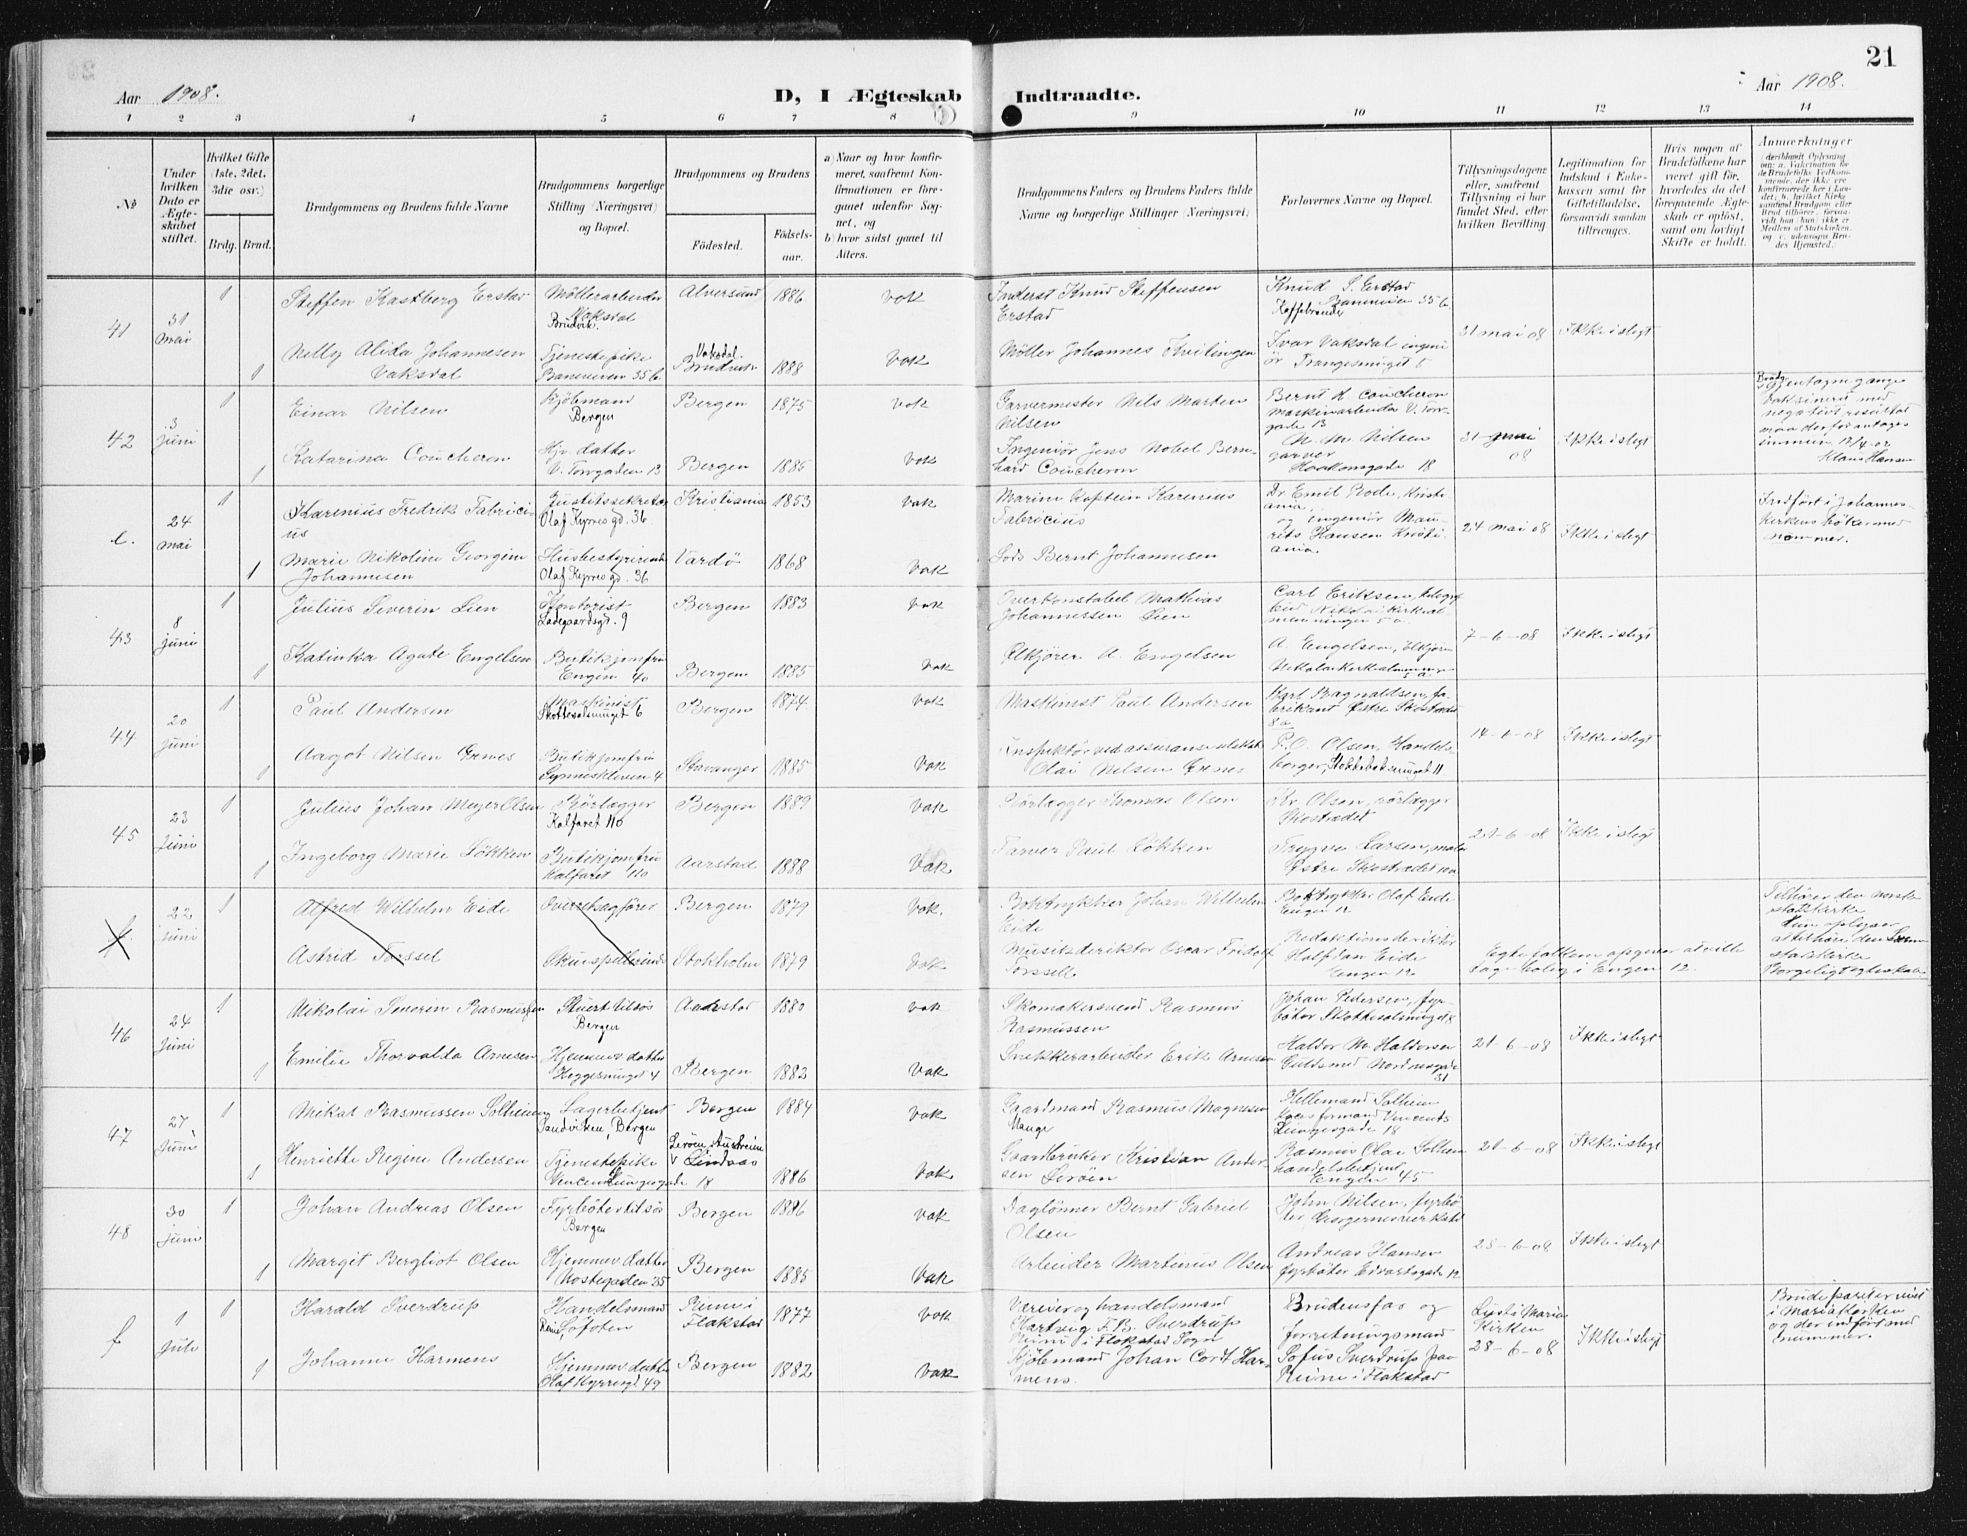 21
Aar 1908.
D, I Ægteskab Indtraadte.
Aar 1908.
1 2 3 4 5 6 7 8 9 10 11 12 13 14
No
Under hvilken Dato er Ægteskabet stiftet.
Hvilket Gifte (1ste, 2det, 3die osv.)
Brdg. Brud.
Brudgommens og Brudens fulde Navne
Brudgommens borgerlige Stilling (Næringsvei) og Bopæl.
Brudgommens og Brudens
Fødested.
Fødselsaar.
a) Naar og hvor konfirmeret, saafremt Konfirmationen er foregaaet udenfor Sognet, og
b) hvor sidst gaaet til Alters.
Brudgommens Faders og Brudens Faders fulde Navne og borgerlige Stillinger (Næringsvei)
Forlovernes Navne og Bopæl.
Tillysningsdagene eller, saafremt Tillysning ei har fundet Sted, efter hvilken Bevilling
Legitimation for Indskud i Enkekassen samt for Giftetilladelse, forsaavidt saadan tiltrænges.
Hvis nogen af Brudefolkene har været gift før, hvorledes da det foregaaende Ægteskab er opløst, samt om lovligt Skifte er holdt.
Anmærkninger
41
31 mai
1
Steffen Kastberg Erstad
Møllerarbeider Vaksdal Brudvik.
Alversund
1886
vak
Inderst Knud Steffensen Erstad
Knud S. Erstad
Kaffebrænder Baneveien 35 b
31 mai 08
Ikke i slegt
1
Nelly Alida Johannesen Vaksdal
Tjenestepike Baneveien 35 b.
Vaksdal Brudvik
1888
vak
Møller Johannes Kvilingen
Ivar Vaksdal ingeniør Trangesmuget 5
42
3 Juni
1
Einar Nilsen
Kjøbmand Bergen
Bergen
1875
vak
Garvermester Nils Marten Nilsen
Bernt H Coucheron maskinarbeider V. Torgade 13
31 mai 08
Ikke i slegt
1
Katarina Coucheron
Hjv datter V. Torgaden 13
Bergen
1885
vak
Ingeniør Jens Nobel Bernhard Coucheron
N. M. Nilsen garver Haakonsgade 18
Brudg. gjentagne gange vaksinert med negativt resultat maa derfor antages immun 12/4 02 Klaus Hansen
e.
24 mai
1
Karenius Fredrik Fabricius
Justitssekretær Olaf Kyrres gd. 36
Kristiania
1853
vak
Marine Kaptein Karenius Fabricius
Dr Emil Rode, Kristiania, og ingeniør Maurits Hansen Kristiania.
24 mai 08
Ikke i slegt
Indført i Johanneskirkens bøker med nommer.
1
Marie Nikoline Georgine Johannesen
Husbestyrerinde Olaf Kyrres gd. 36
Vardø
1868
vak
Lods Bernt Johannesen
43
8 Juni
1
Julius Severin Lien
Kontorist Ladegaardsgd. 9
Bergen
1883
vak
Overkonstabel Mathias Johannessen Lien
Carl Eriksen, Nikolaikirkealmenningen 5 a.
7-6-08
Ikke i slegt
1
Katinka Agate Engelsen
Butikjomfru Engen 40
Bergen
1885
vak
Ølkjører A. Engelsen
A. Engelsen, Ølkjører Nikolaikirkealmenningen 5 a.
44
20 Juni
1
Paul Andersen
Maskinist Skottesalsmuget 6
Bergen
1874
vak
Maskinist Paul Andersen
Karl Ragnaldsen, fabrikant Østre Skostrædet 8 a
14-6-08
Ikke i slegt
1
Aagot Nilsen Exnes
Butikjomfru 4
Stavanger
1885
vak
Inspektør ved assuranseselskab Olai Nilsen Exnes
P. O. Olsen, Handelsborger, 11
45
23 Juni
1
Julius Johan Meyer Olsen
Rørlægger Kalfaret 110
Bergen
1889
vak
Rørlægger Thomas Olsen
Kr Olsen, rørlægger Skostrædet
21-6-08
Ikke i slegt
1
Ingeborg Marie Løkken
Butikjomfru Kalfaret 110
Aarstad
1888
vak
Farver Paul Løkken
Trygve Larsen, maler Østre Skostrædet 10 a
f.
22 Juni
1
Alfred Wilhelm Eide
Overretssagfører
Bergen
1879
vak.
Boktrykker Johan Wilhelm Eide
Boktrykker Olaf Eide Engen 12
Tilhører den norske statskirke Hun oplyser at tilhøre den Svenske statskirke Borgerligt egteskab
Astrid Torssel
Skuespillerinde
Stokholm
1879
vak
Musikdirektør Oscar Fridolf Torssell
Redaktionsdirektør Halfdan Eide Engen 12
Egtefolkene opgiver at ville tage bolig i Engen 12.
46
24 Juni
1
Nikolai Severin Rasmussen
Stuert tilsøs Bergen
Aarstad
1880
vak
Skomakersvend Rasmus Rasmussen
Johan Pedersen, fyrbøter Skottesalsmuget 8
21-6-08
Ikke i slegt
1
Emilie Thorvalda Arnesen
Hjemmev. datter Heggesmuget 4
Bergen
1882
vak
Snekkerarbeider Erik Arnesen
Haldor M. Haldorsen Guldsmed Nordnesgade 31
47
27 Juni
1
Mikal Rasmussen Solheim
Lagerbetjent Sandviken, Bergen
Bergen
1884
vak
Gaardmand Rasmus Magnesen Mange
Hellemand Solheim formand Vincents Lungesgade 18
21-6-08
Ikke i slegt
1
Henriette Regine Andersen
Tjenestepike Vincents Lungesgade 18
Lerøen, Austrheim v Lindaas
1886
vak
Gaardbruker Kristian Andersen Lerøen
Rasmus Olai Solheim handelsbetjent Engen 45
48
30 Juni
1
Johan Andreas Olsen
Fyrbøter tilsøs Bergen
Bergen
1886
vak
Daglønner Bernt Gabriel Olsen
John Nilsen, fyrbøter
28-6-08
Ikke i slegt
1
Margit Bergliot Olsen
Hjemmev datter Nøstegaden 35
Bergen
1885
vak
Arbeider Martinus Olsen
Andreas Hansen fyrbøter Sivartsgade 12
f
1 Juli
1
Harald Sverdrup
Handelsmand Reine Lofoten
Reine i Flakstad
1877
vak
Væreier og handelsmand Hartvig F. B. Sverdrup Reine i Flakstad Sogn
Brudens far og forretningsmand Sofus Sverdrup paa Reine i Flakstad
Lyst i Mariakirken 28-6-08
Ikke i slegt
Brudeparret viet i Mariakirken og der indført med nummer.
1
Johanne Harmens
Hjemmev datter Olaf Kyrresgd 49
Bergen
1882
vak
Kjøbmand Johan Cort Harmens.